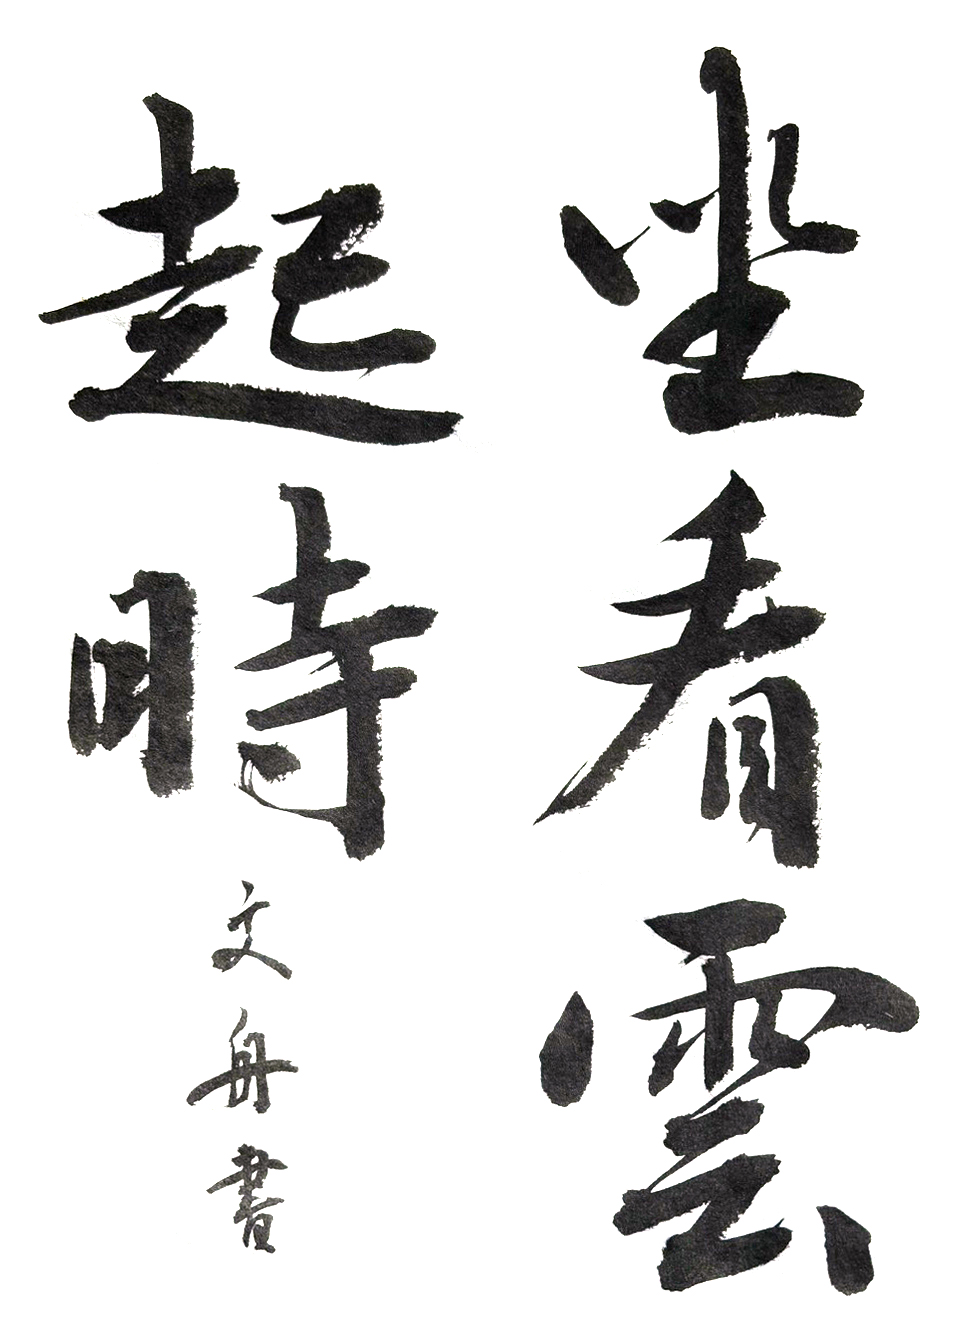 坐看雲
起時
文舟書